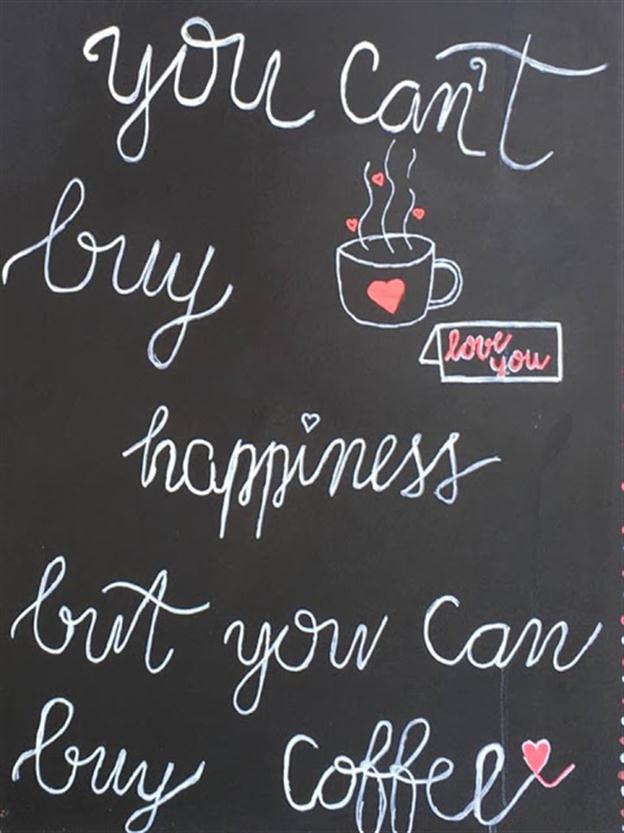 you can't
buy
love
you
happiness
but you can
buy coffee